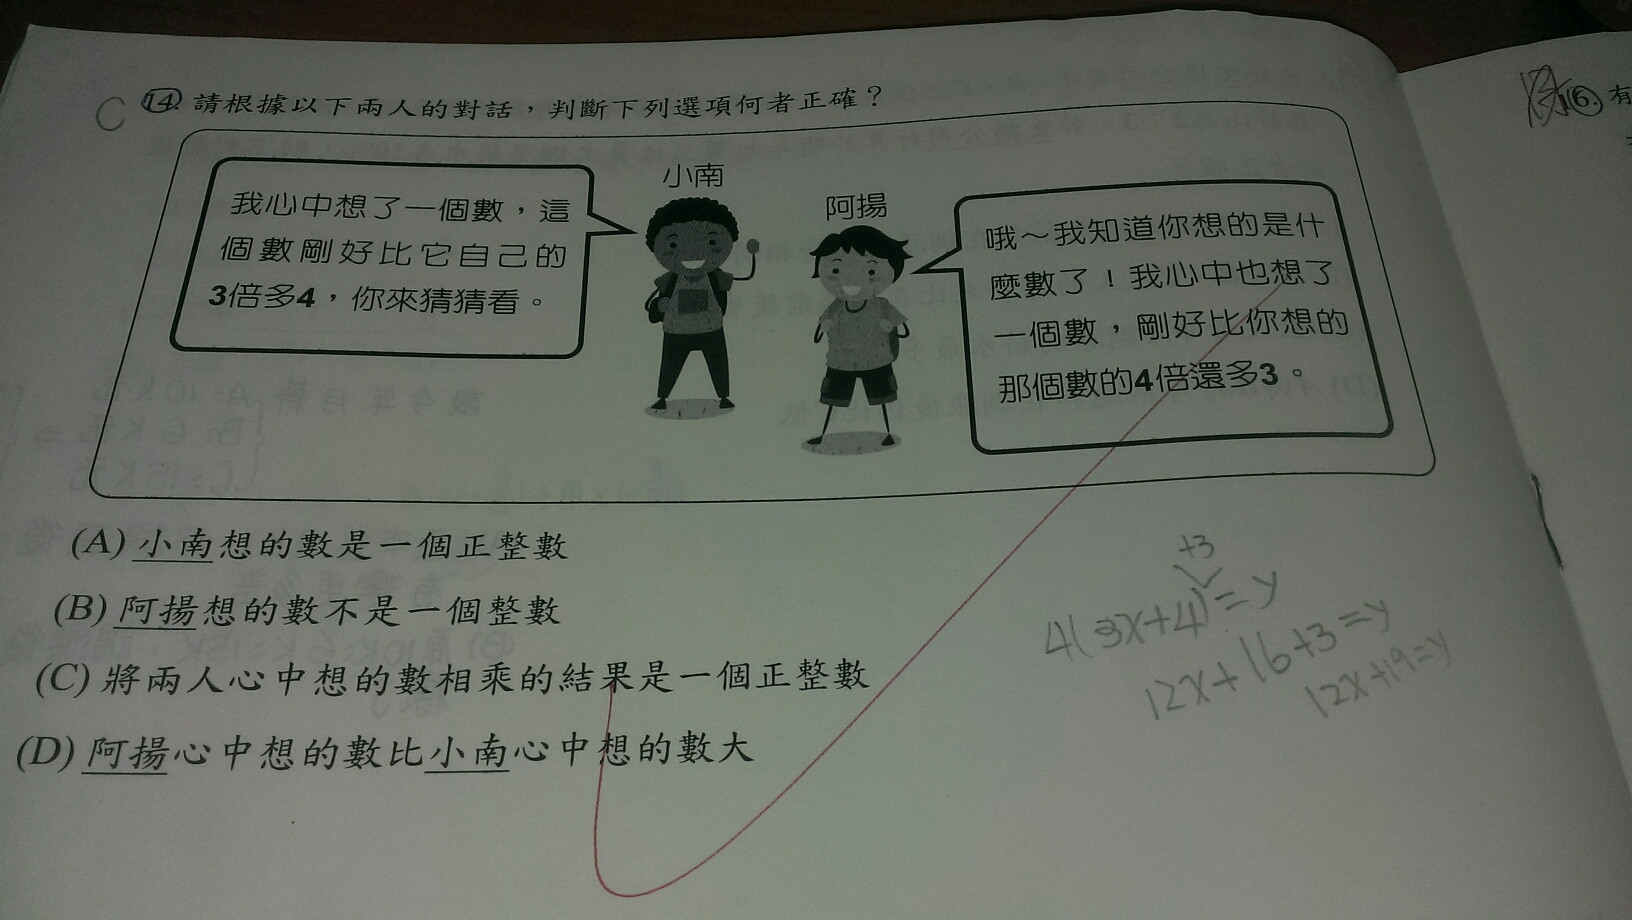 C 14. 請根據以下兩人的對話，判斷下列選項何者正確？
小南
我心中想了一個數，這
個數剛好比它自己的
3倍多4，你來猜猜看。
阿揚
哦～我知道你想的是什
麼數了！我心中也想了
一個數，剛好比你想的
那個數的4倍還多3。
(A) 小南想的數是一個正整數
(B) 阿揚想的數不是一個整數
(C) 將兩人心中想的數相乘的結果是一個正整數
(D) 阿揚心中想的數比小南心中想的數大
+3
4(3x+4)=y
12x+16+3=y
12x+19=y
16. 有